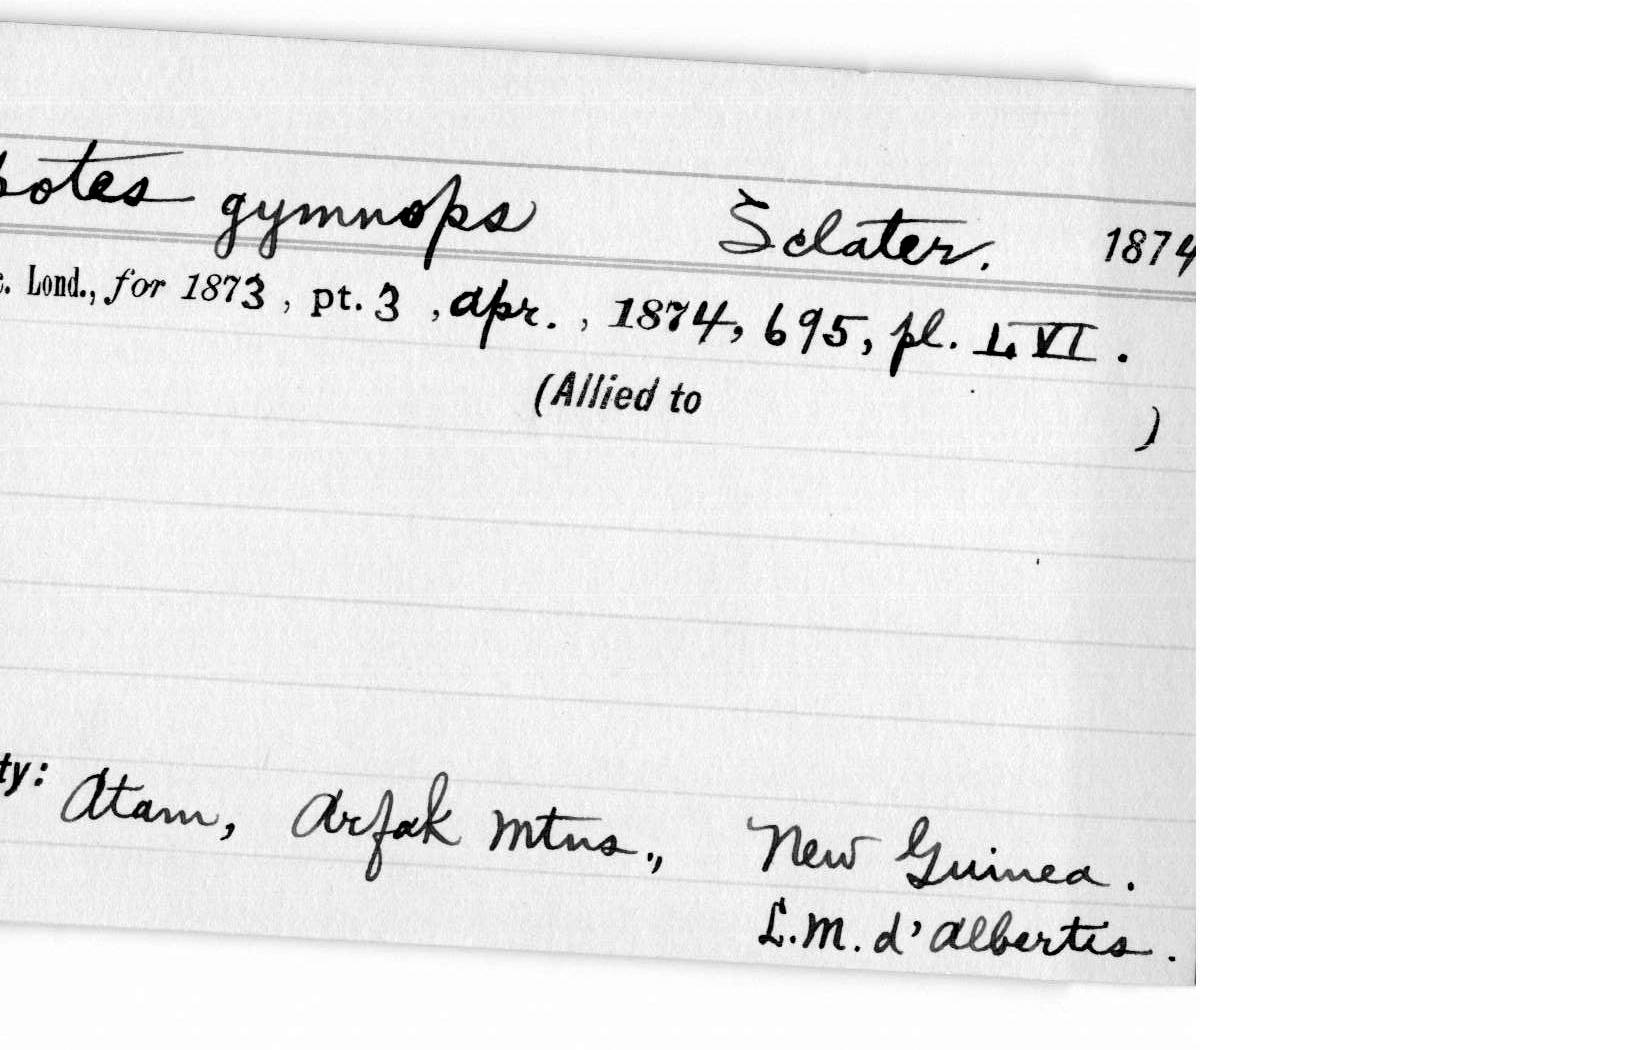 potes gymnops Sclater. 1874
c. Lond., for 1873, pt. 3, Apr., 1874, 695, pl. LVI.
(Allied to )
ty: Atam, Arfak Mtns., New Guinea.
L.M. d'Albertis.